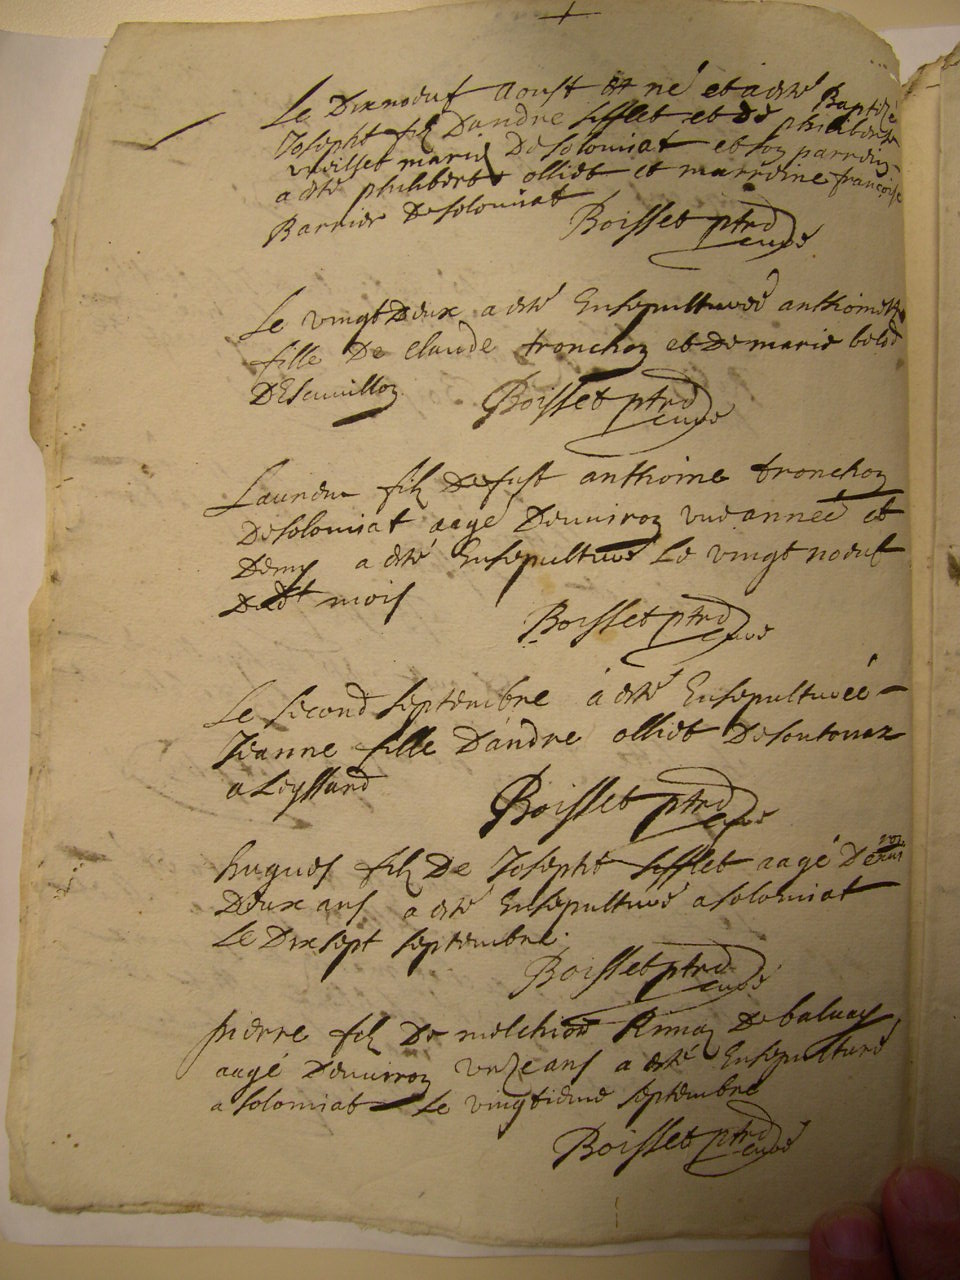 Le Dixnoeuf Aoust Est né et a esté Baptizé
Josepht filz D'andre sifflet et de philiberte
vueillet mariez De solomiat et son parrein
a esté philiberte olliet et marreine francoise
Barrier De solomiat
Boisset ptre curé
Le vingt Deux a esté Ensepulturée anthoinette
fille De Claude tronchon et De marie
D'Escuvillon
Boisset ptre curé
Laurent filz De fust anthoine tronchon
De solomiat aagé D'environ une année et
Demy a esté Ensepulturé Le vingt noeuf
Dudt mois
Boisset ptre curé
Le second septembre a esté Ensepulturée
Jeanne fille D'andre olliet
a Leyssard
Boisset ptre curé
hugues filz De Josepht sifflet aagé D'environ
Deux ans a esté Ensepulturé a solomiat
Le Dix sept septembre.
Boisset ptre curé
pierre filz De melchior De balvay
aagé D'environ unze ans a esté Ensepulturé
a solomiat Le vingtieme septembre
Boisset ptre curé